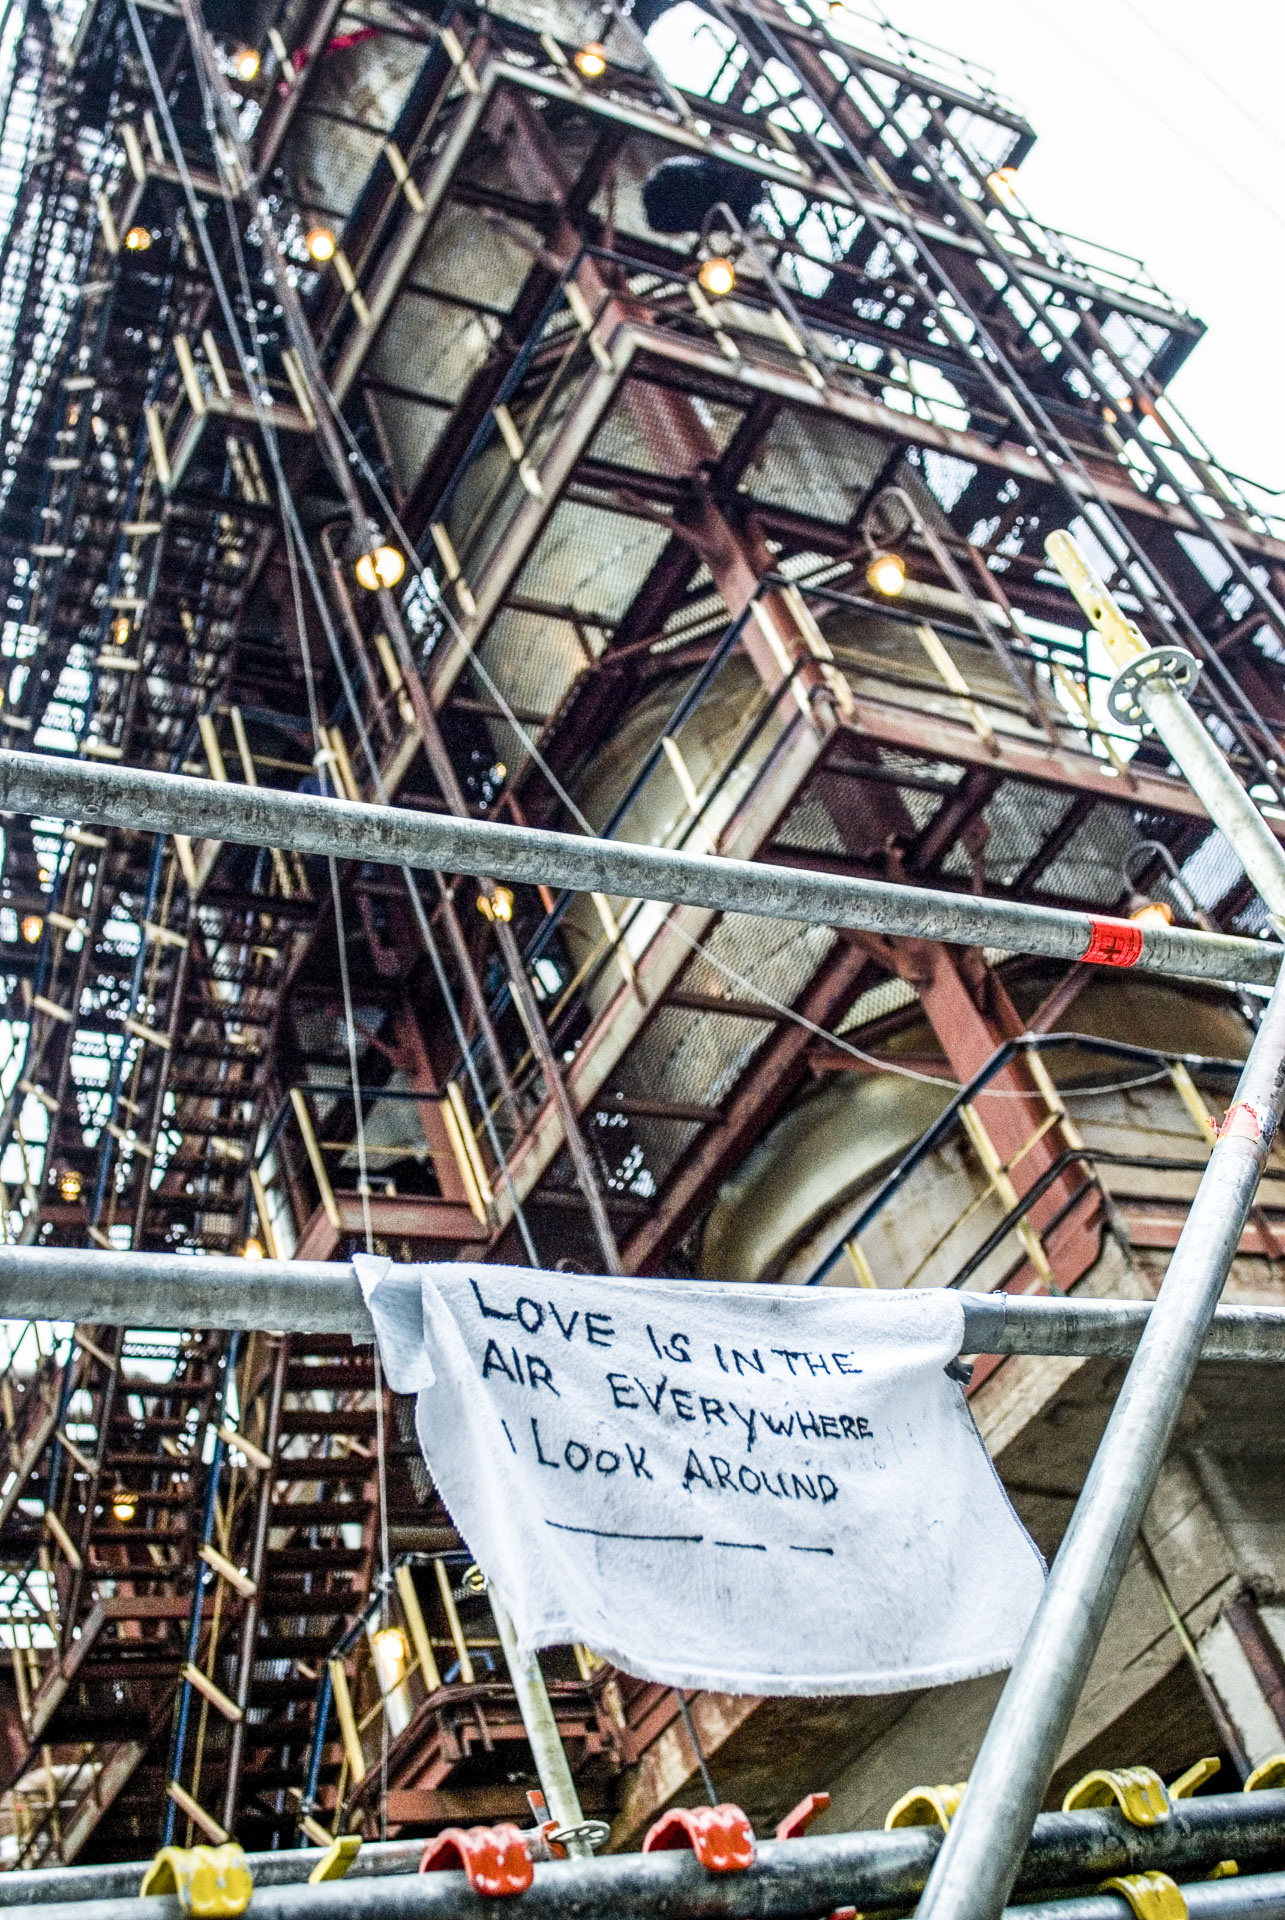 LOVE IS IN THE
AIR EVERYWHERE
I LOOK AROUND